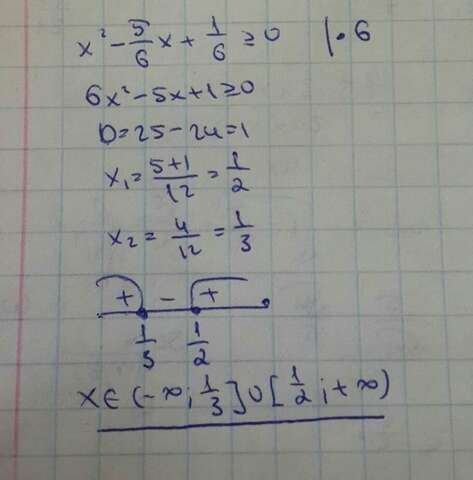 x² - 5/6 x + 1/6 ≥ 0 |·6
6x² - 5x + 1 ≥ 0
D = 25 - 24 = 1
x₁ = (5+1)/12 = 1/2
x₂ = 4/12 = 1/3
+ - +
1/3 1/2
x ∈ (-∞; 1/3] ∪ [1/2; +∞)